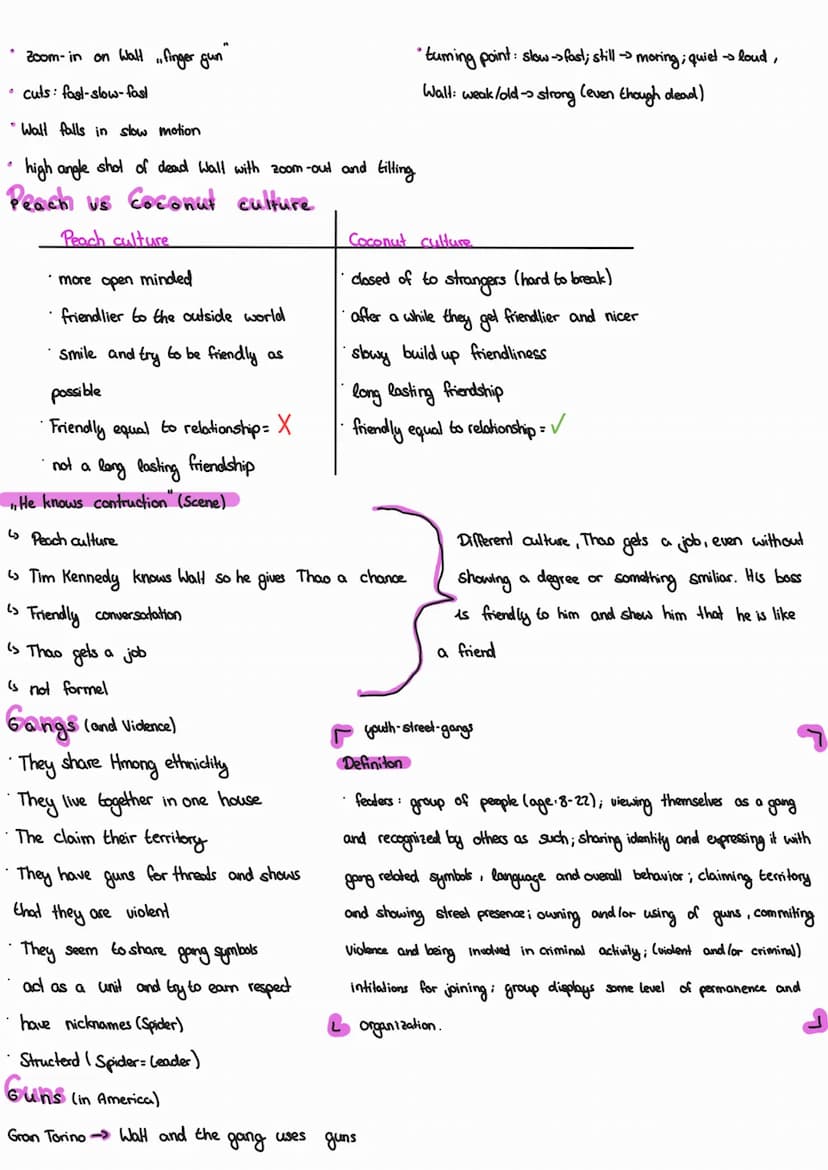 • zoom-in on Walt „finger gun"
• cuts: fast-slow-fast
• Walt falls in slow motion
• high angle shot of dead Walt with zoom-out and tilting
• turning point: slow→fast; still → moring; quiet → loud,
Walt: weak/old→ strong (even though dead)
Peach vs Coconut culture
Peach culture
• more open minded
• friendlier to the outside world
• smile and try to be friendly as
possible
• Friendly equal to relationship= X
• not a long lasting friendship
Coconut culture
• closed of to strangers (hard to break)
• after a while they get friendlier and nicer
• slowy build up friendliness
• long lasting friendship
• friendly equal to relationship = ✓
„He knows contruction" (Scene)
↳ Peach culture
↳ Tim Kennedy knows Walt so he gives Thao a chance
↳ Friendly conversatation
↳ Thao gets a job
↳ not formel
Different culture, Thao gets a job, even without
showing a degree or something smiliar. His boss
is friendly to him and show him that he is like
a friend
Gangs (and Violence)
• They share Hmong ethnicitiy
• They live together in one house
• The claim their territory
• They have guns for threads and shows
that they are violent
• They seem to share gang symbols
• act as a unit and try to earn respect
• have nicknames (Spider)
• Structerd (Spider= Leader)
youth-street-gangs
Definiton
• featers: group of people (age: 8-22); viewing themselves as a gang
and recognized by others as such; sharing identity and expressing it with
gang related symbols, language and overall behavior; claiming territory
and showing street presence; owning and/or using of guns, commiting
violence and being involved in criminal activity; (violent and/or criminal)
intilations for joining; group displays some level of permanence and
organization.
Guns (in America)
Gran Torino → Walt and the gang uses guns